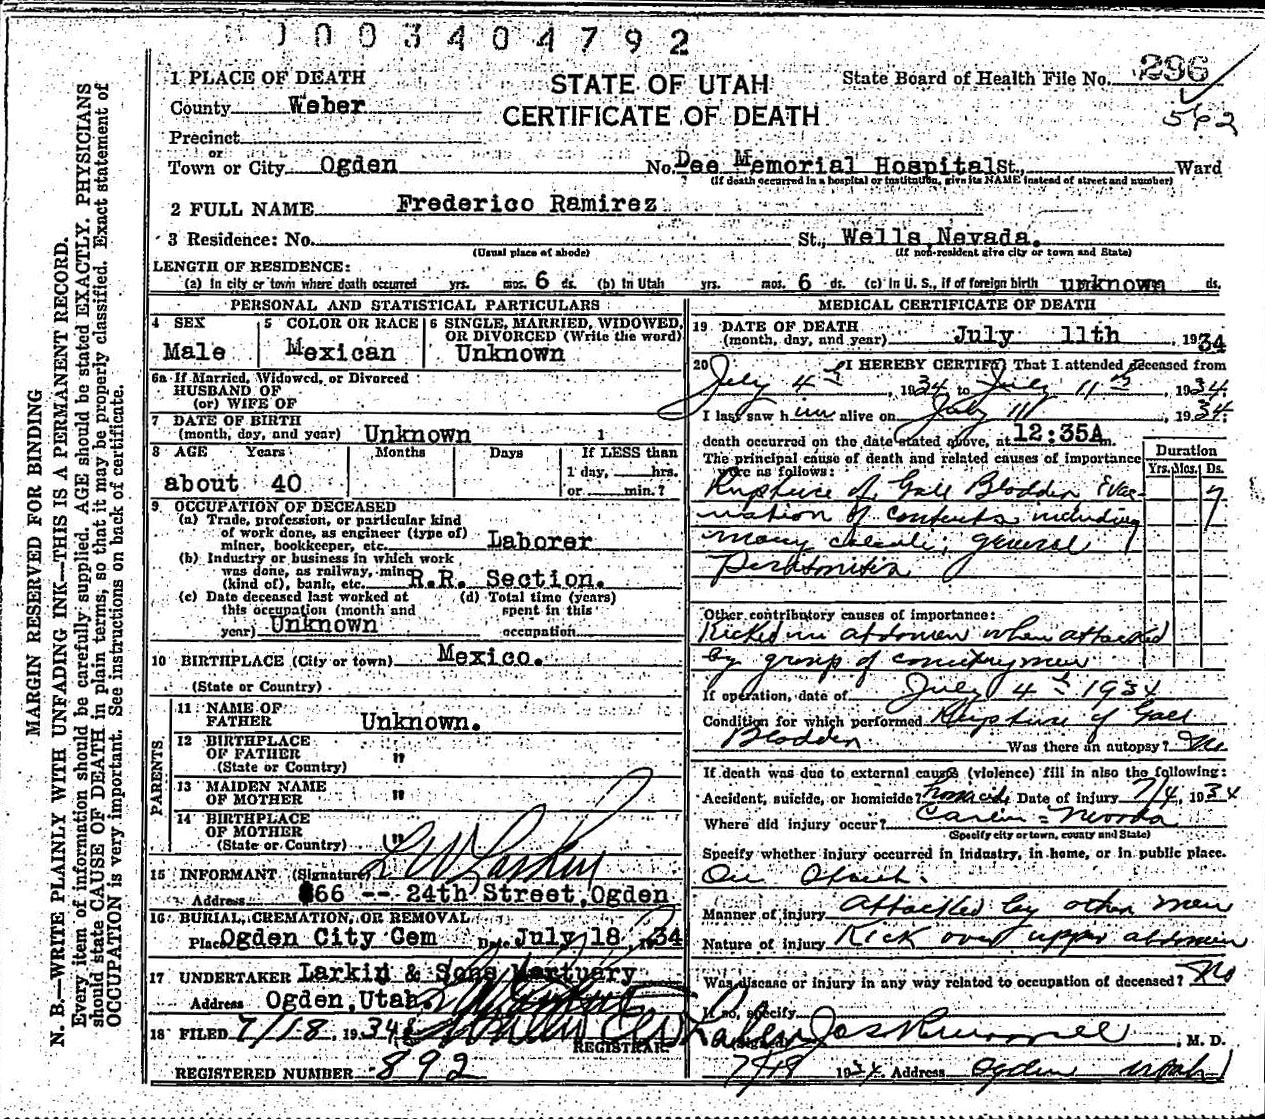 1 0 0 3 4 0 4 7 9 2
MARGIN RESERVED FOR BINDING
N. B.—WRITE PLAINLY WITH UNFADING INK—THIS IS A PERMANENT RECORD.
Every item of information should be carefully supplied. AGE should be stated EXACTLY. PHYSICIANS
should state CAUSE OF DEATH in plain terms, so that it may be properly classified. Exact statement of
OCCUPATION is very important. See instructions on back of certificate.
STATE OF UTAH
CERTIFICATE OF DEATH
State Board of Health File No. 296
562
1 PLACE OF DEATH
County Weber
Precinct
or
Town or City Ogden No. Dee Memorial Hospital St., Ward
(If death occurred in a hospital or institution, give its NAME instead of street and number)
2 FULL NAME Frederico Ramirez
3 Residence: No. St., Wells, Nevada.
(Usual place of abode) (If non-resident give city or town and State)
LENGTH OF RESIDENCE:
(a) In city or town where death occurred yrs. mos. 6 ds. (b) In Utah yrs. mos. 6 ds. (c) In U. S., if of foreign birth unknown ds.
PERSONAL AND STATISTICAL PARTICULARS
4 SEX
Male
5 COLOR OR RACE
Mexican
6 SINGLE, MARRIED, WIDOWED,
OR DIVORCED (Write the word)
Unknown
6a If Married, Widowed, or Divorced
HUSBAND OF
(or) WIFE OF
7 DATE OF BIRTH
(month, day, and year) Unknown
8 AGE Years Months Days If LESS than
1 day, hrs.
or min.?
about 40
9 OCCUPATION OF DECEASED
(a) Trade, profession, or particular kind
of work done, as engineer (type of)
miner, bookkeeper, etc. Laborer
(b) Industry or business in which work
was done, as railway, mine
(kind of), bank, etc. R.R. Section.
(c) Date deceased last worked at
this occupation (month and
year) Unknown
(d) Total time (years)
spent in this
occupation
10 BIRTHPLACE (City or town) Mexico.
(State or Country)
PARENTS
11 NAME OF
FATHER Unknown.
12 BIRTHPLACE
OF FATHER "
(State or Country)
13 MAIDEN NAME
OF MOTHER "
14 BIRTHPLACE
OF MOTHER "
(State or Country)
15 INFORMANT (Signature) L W Larkin
Address 66 -- 24th Street, Ogden
16 BURIAL, CREMATION, OR REMOVAL
Place Ogden City Cem Date July 18, 1934
17 UNDERTAKER Larkin & Sons Mortuary
Address Ogden, Utah.
18 FILED 7/18 1934
REGISTRAR
REGISTERED NUMBER 892
MEDICAL CERTIFICATE OF DEATH
19 DATE OF DEATH
(month, day, and year) July 11th, 1934
20 I HEREBY CERTIFY That I attended deceased from
July 4th, 1934 to July 11th 1934.
I last saw him alive on July 11, 1934.
death occurred on the date stated above, at 12:35A m.
The principal cause of death and related causes of importance
were as follows:
Duration
Yrs. Mos. Ds.
Rupture of Gall Bladder Evac- 7
uation of contents including
many calculi; general
Peritonitis
Other contributory causes of importance:
Kicked in abdomen when attacked
by group of countrymen
If operation, date of July 4th 1934
Condition for which performed Rupture of Gall
Bladder Was there an autopsy? No
If death was due to external cause (violence) fill in also the following:
Accident, suicide, or homicide? Homicide Date of injury 7/4, 1934
Where did injury occur? Carlin - Nevada
(Specify city or town, county and State)
Specify whether injury occurred in industry, in home, or in public place.
On
Manner of injury Attacked by other men
Nature of injury Kick over upper abdomen
Was disease or injury in any way related to occupation of deceased? No
If so, specify
M. D.
7/18 1934. Address Ogden Utah